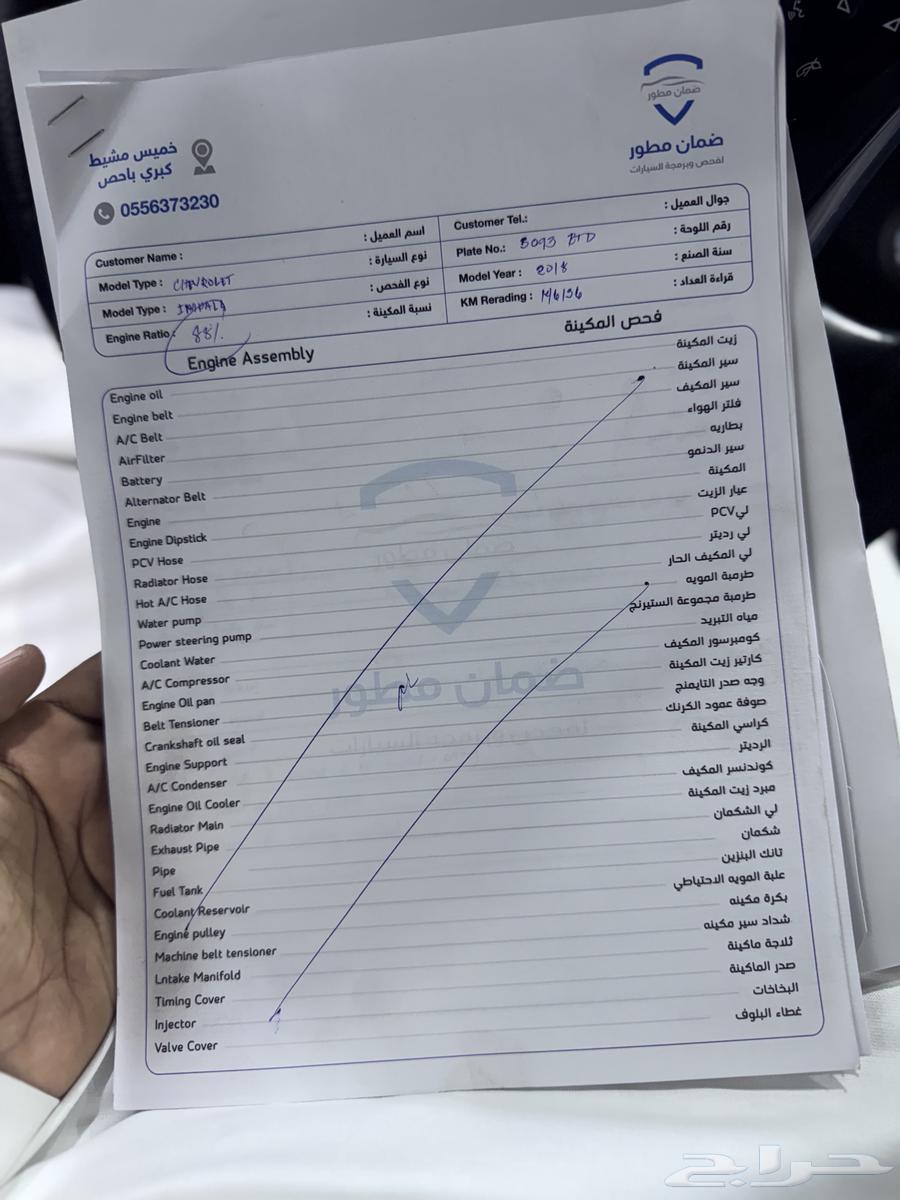 ضمان مطور
ضمان مطور
لفحص وبرمجة السيارات
خميس مشيط
كبري باحص
0556373230
Customer Name : اسم العميل :
Customer Tel.: جوال العميل :
Model Type : CHEVROLET نوع السيارة :
Plate No.: رقم اللوحة :
Model Type : IMPALA نوع الفحص :
Model Year : 2018 سنة الصنع :
Engine Ratio : 88% نسبة المكينة :
KM Rerading : قراءة العداد :
Engine Assembly فحص المكينة
Engine oil زيت المكينة
Engine belt سير المكينة
A/C Belt سير المكيف
AirFilter فلتر الهواء
Battery بطاريه
Alternator Belt سير الدنمو
Engine المكينة
Engine Dipstick عيار الزيت
PCV Hose لي PCV
Radiator Hose لي رديتر
Hot A/C Hose لي المكيف الحار
Water pump طرمبة المويه
Power steering pump طرمبة مجموعة الستيرنج
Coolant Water مياه التبريد
A/C Compressor كومبرسور المكيف
Engine Oil pan كارتير زيت المكينة
Belt Tensioner وجه صدر التايمنج
Crankshaft oil seal صوفة عمود الكرنك
Engine Support كراسي المكينة
A/C Condenser الرديتر
Engine Oil Cooler كوندنسر المكيف
Radiator Main مبرد زيت المكينة
Exhaust Pipe لي الشكمان
Pipe شكمان
Fuel Tank تانك البنزين
Coolant Reservoir علبة المويه الاحتياطي
Engine pulley بكرة مكينه
Machine belt tensioner شداد سير مكينه
Lntake Manifold ثلاجة ماكينة
Timing Cover صدر الماكينة
Injector البخاخات
Valve Cover غطاء البلوف
ضمان مطور
ضمان مطور
لفحص وبرمجة السيارات
حراج